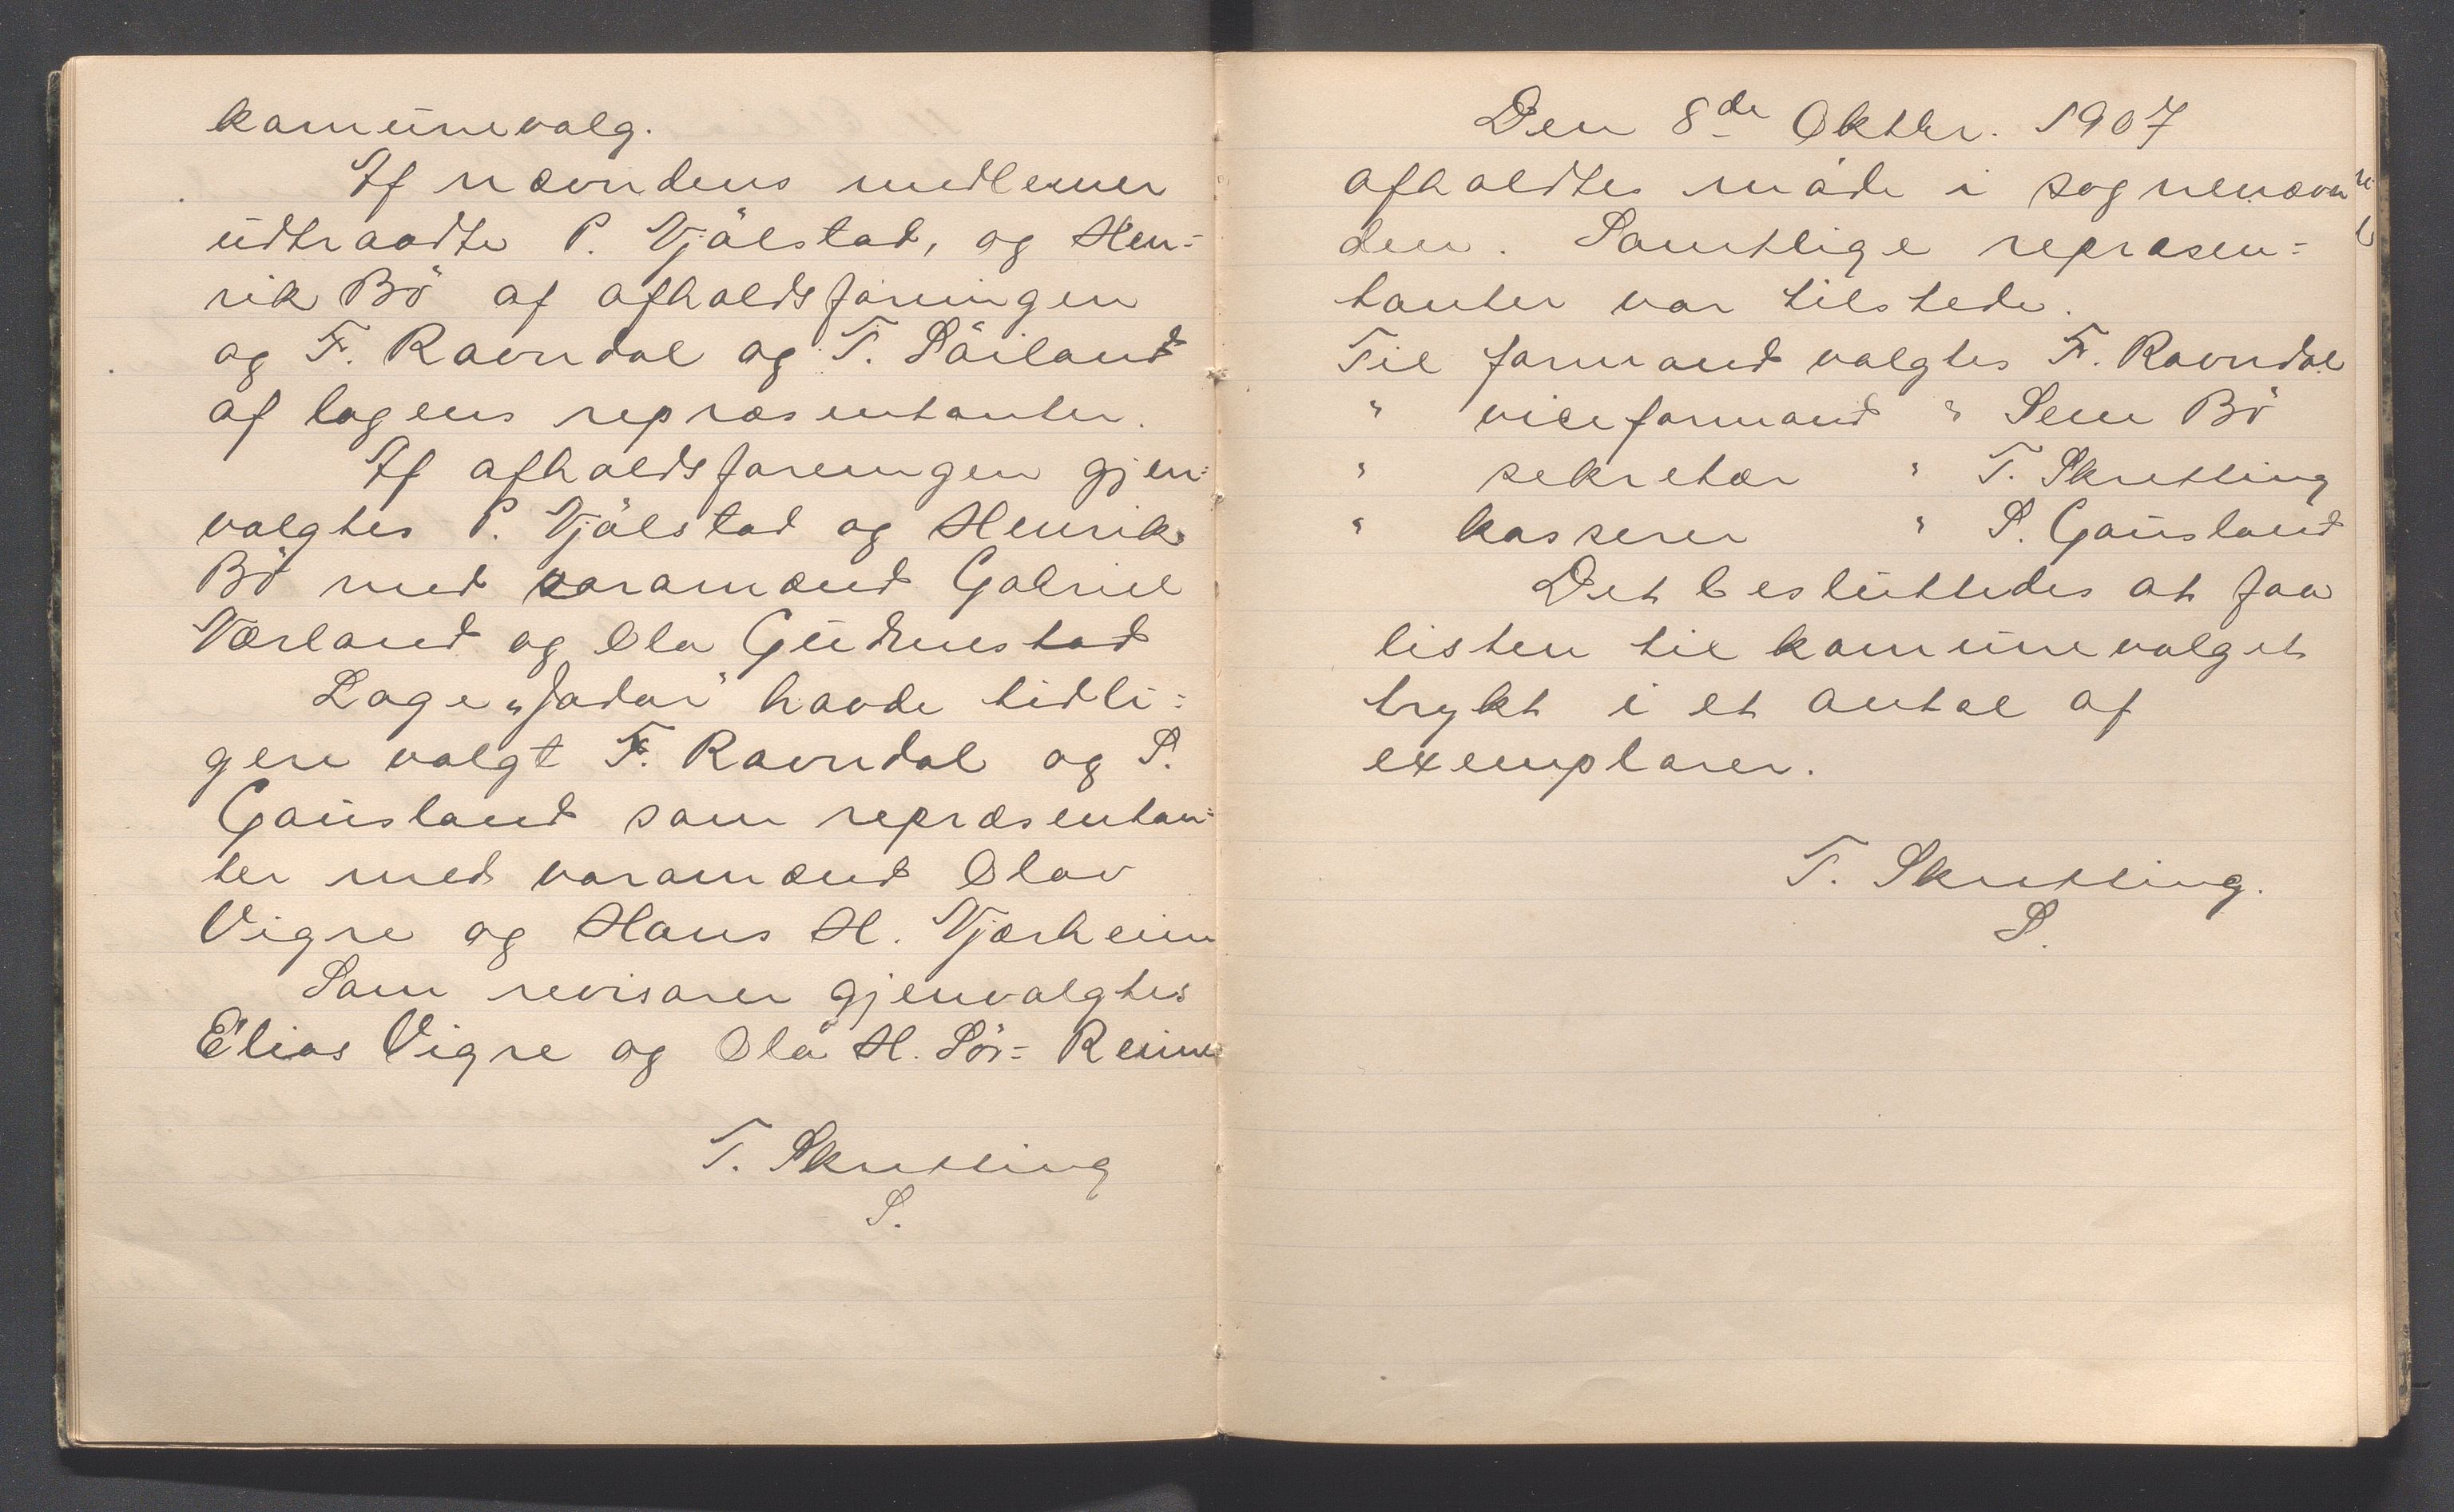 komunevalg.
Af nævndens medlemmer
udtraadte P. Njålstad, og Hen=
rik Bö af afholdsforeningen
og F. Ravndal og T. Söiland
af logens repræsentanter.
Af afholdsforeningen gjen=
valgtes P. Njålstad og Henrik
Bö med varamænd Gabriel
Værland og Ola Gudmestad
Loge „Jadar" havde tidli=
gere valgt F. Ravndal og S.
Gausland som repræsentan=
ter med varamænd Olav
Vigre og Hans H. Njærheim
Som revisorer gjenvalgtes
Elias Vigre og Ola H. Sör= Reime
T. Skretting
S.
Den 8de Oktbr. 1907
afholdtes måde i sognenævn
den. Samtlige repræsen=
tanter var tilstede.
Til formand valgtes F. Ravndal
" viceformand " Sem Bö
" sekretær " T. Skretting
" kasserer " S. Gausland
Det besluttedes at faa
listen til komunevalget
trykt i et antal af
exemplarer.
T. Skretting.
S.